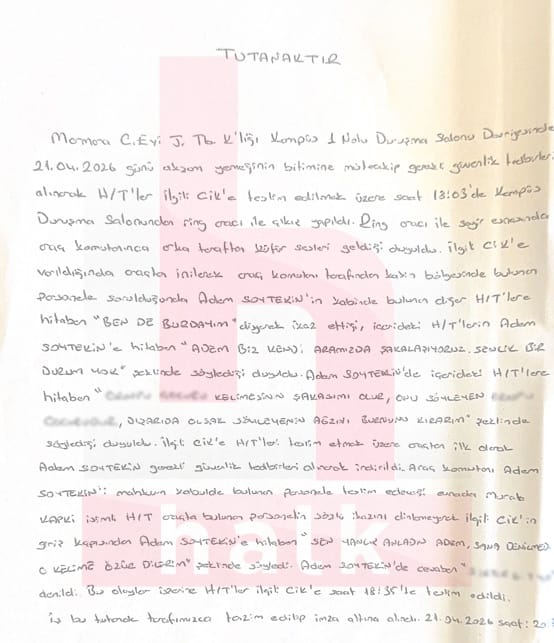 TUTANAKTIR
Marmara C.Evi J. Tb. K'lığı Kampüs 1 Nolu Duruşma Salonu Devriyesinde
21.04.2026 günü akşam yemeğinin bitimine müteakip gerekli güvenlik tedbirleri
alınarak H/T'ler ilgili Cik'e teslim edilmek üzere saat 18:03'de Kampüs
Duruşma Salonundan ring aracı ile çıkış yapıldı. Ring aracı ile seyir esnasında
araç komutanınca arka taraftan küfür sesleri geldiği duyuldu. İlgili Cik'e
varıldığında araçtan inilerek araç komutanı tarafından kabin bölgesinde bulunan
Personele sorulduğunda Adem SOYTEKİN'in kabinde bulunan diğer H/T'lere
hitaben "BEN DE BURDAYIM" diyerek ikaz ettiği, içerideki H/T'lerin Adem
SOYTEKİN'e hitaben "ADEM BİZ KENDİ ARAMIZDA ŞAKALAŞIYORUZ. SENLİK BİR
DURUM YOK" şeklinde söylediği duyuldu. Adem SOYTEKİN'de içerideki H/T'lere
hitaben " KELİMESİNİN ŞAKASIMI OLUR, ONU SÖYLEYEN
, DIŞARIDA OLSAK SÖYLEYENİN AĞZINI BURNUNU KIRARIM" şeklinde
söylediği duyuldu. İlgili Cik'e H/T'leri teslim etmek üzere araçtan ilk olarak
Adem SOYTEKİN gerekli güvenlik tedbirleri alınarak indirildi. Araç komutanı Adem
SOYTEKİN'i mahkum kabulde bulunan personele teslim edeceği esnada Murat
KAPKİ isimli H/T araçta bulunan personelin sözlü ikazını dinlemeyerek ilgili Cik'in
giriş kapısından Adem SOYTEKİN'e hitaben "SEN YANLIŞ ANLADIN ADEM, SANA DENİLMEDİ
O KELİME ÖZÜR DİLERİM" şeklinde söyledi. Adem SOYTEKİN'de cevaben "
denildi. Bu olaylar üzerine H/T'ler ilgili Cik'e saat 18:35'te teslim edildi.
İş bu tutanak tarafımızca tanzim edilip imza altına alındı. 21.04.2026 saat: 20:
h
halk